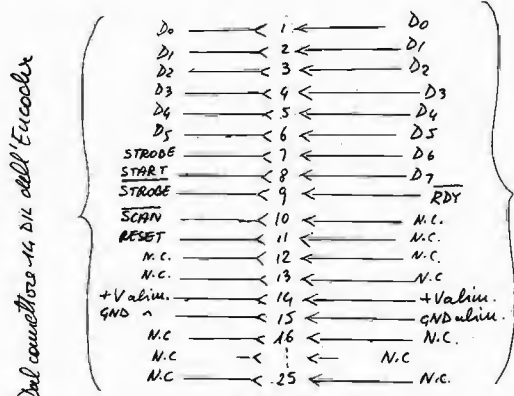 Dal connettore 14 DIL dell'Encoder
D0 1 D0
D1 2 D1
D2 3 D2
D3 4 D3
D4 5 D4
D5 6 D5
STROBE 7 D6
START 8 D7
S̅T̅R̅O̅B̅E̅ 9 R̅D̅Y̅
S̅C̅A̅N̅ 10 N.C.
RESET 11 N.C.
N.C. 12 N.C.
N.C. 13 N.C
+Valim. 14 +Valim.
GND 15 GND alim.
N.C 16 N.C.
N.C N.C
N.C 25 N.C.